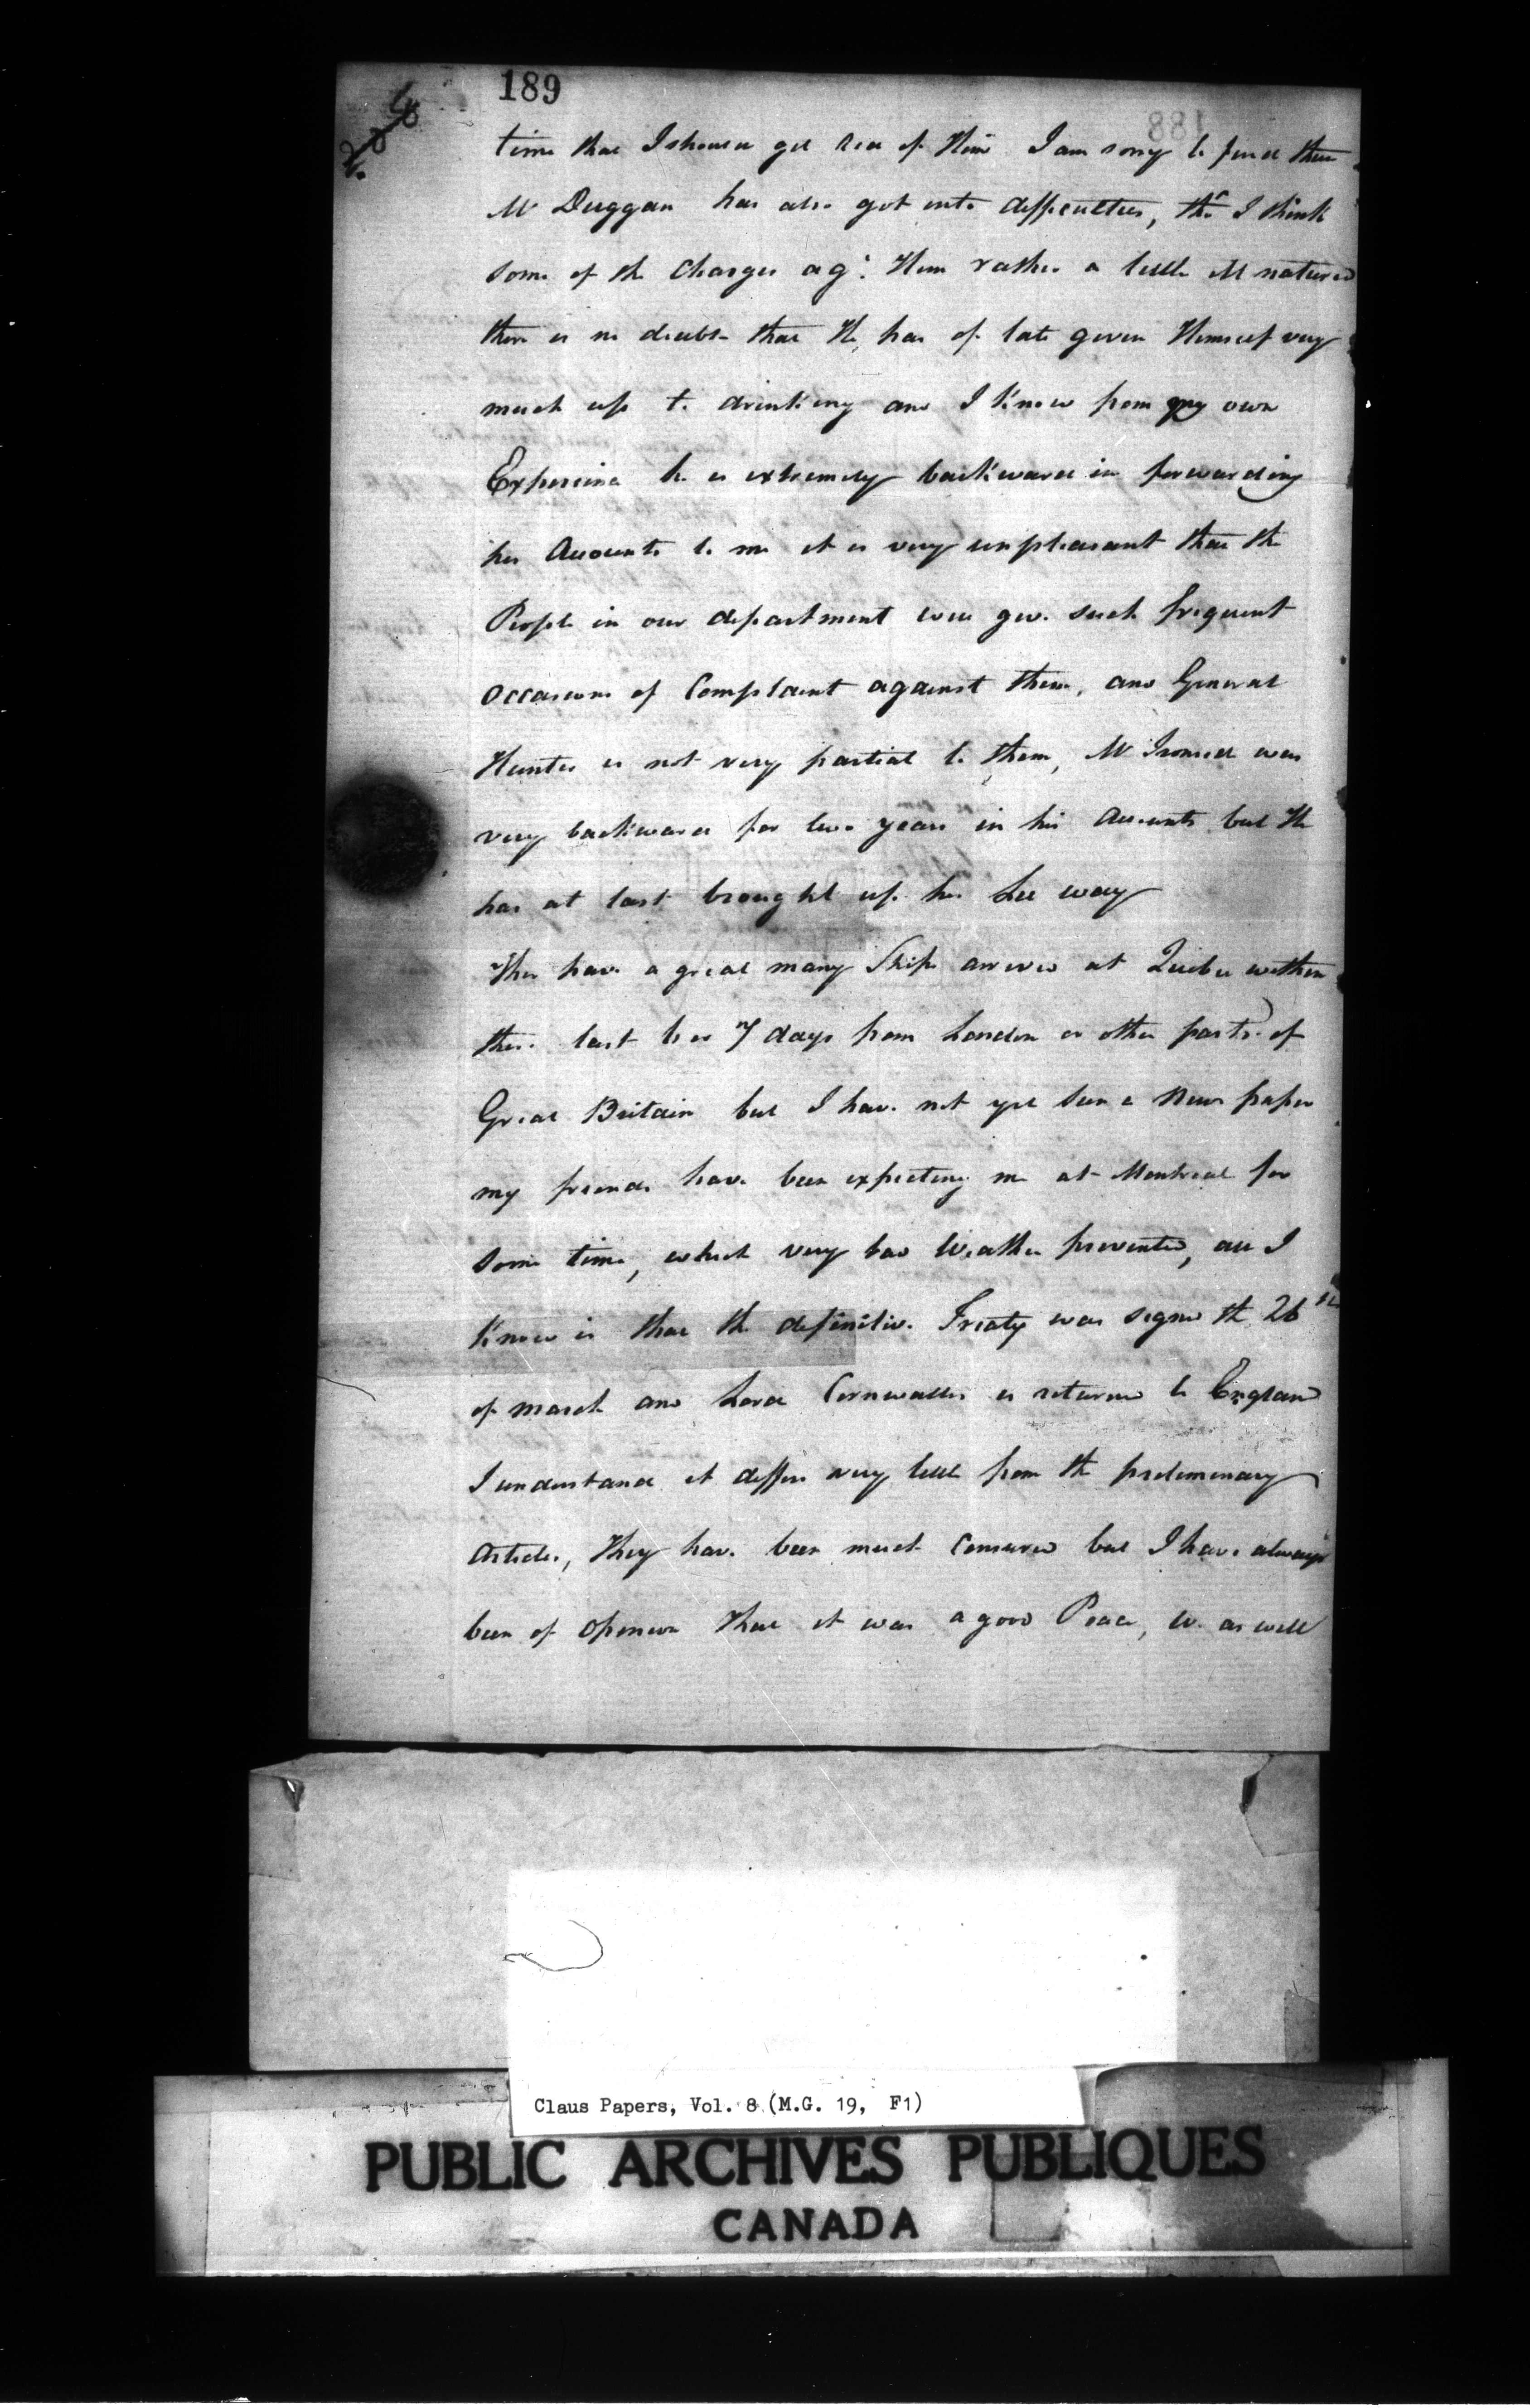 189
188
time that I should get rid of Him I am sorry to find that
Mr Duggan has also got into difficulties, tho' I think
some of the Charges agt. Him rather a little ill natured
there is no doubt that He has of late given Himself very
much up to drinking and I know from my own
Experience he is extremely backward in forwarding
his Accounts to me it is very unpleasant that the
People in our department will give such frequent
occasions of Complaint against them, and General
Hunter is not very partial to them, Mr was
very backward for two years in his Accounts but He
has at last brought up his Lee way
There have a great many Ships arrived at Quebec within
these last 6 or 7 days from London or other parts of
Great Britain but I have not yet seen a News paper
my friends have been expecting me at Montreal for
some time, which very bad Weather prevented, all I
know is that the definitive Treaty was signed the 26th
of March and Lord Cornwallis is returned to England
I understand it differs very little from the preliminary
Articles, They have been much Censured but I have always
been of opinion that it was a good Peace, we as well
Claus Papers, Vol. 8 (M.G. 19, F1)
PUBLIC ARCHIVES PUBLIQUES
CANADA